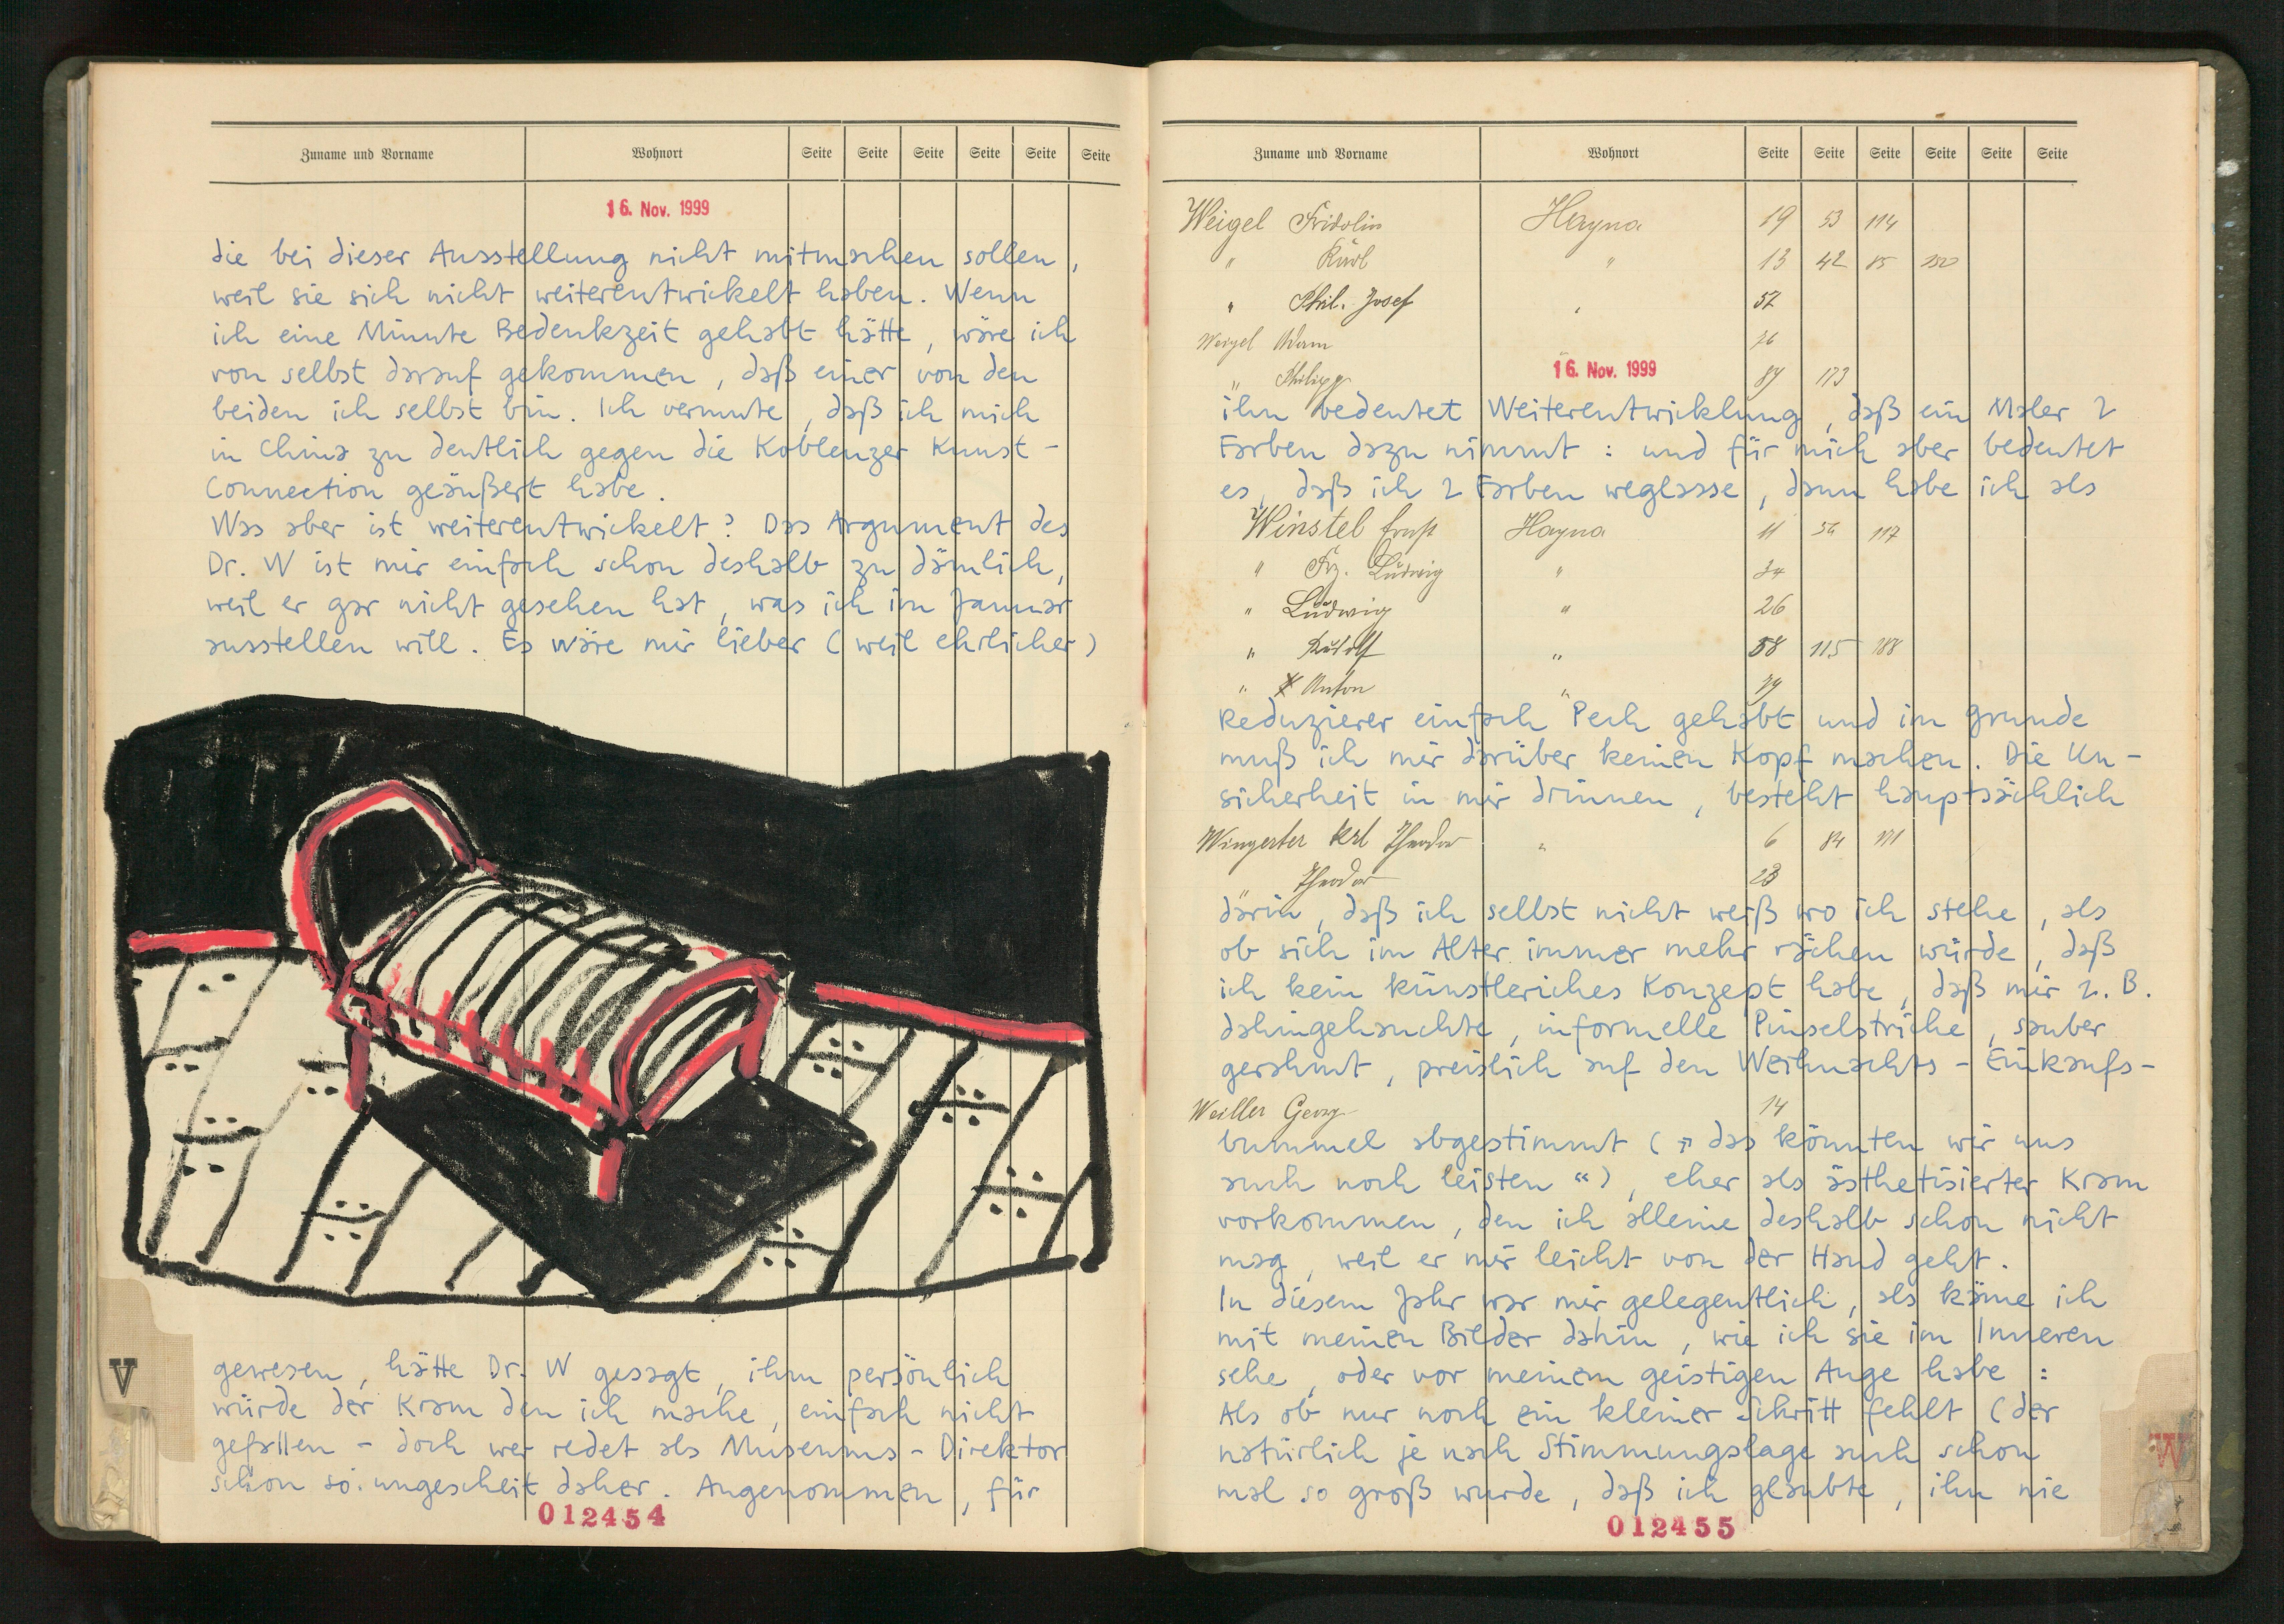 Zuname und Vorname Wohnort Seite Seite Seite Seite Seite Seite
16. Nov. 1999
die bei dieser Ausstellung nicht mitmachen sollen,
weil sie sich nicht weiterentwickelt haben. Wenn
ich eine Minute Bedenkzeit gehabt hätte, wäre ich
von selbst darauf gekommen, daß einer von den
beiden ich selbst bin. Ich vermute, daß ich mich
in China zu deutlich gegen die Koblenzer Kunst-
Connection geäußert habe.
Was aber ist weiterentwickelt? Das Argument des
Dr. W ist mir einfach schon deshalb zu dämlich,
weil er gar nicht gesehen hat, was ich im Januar
ausstellen will. Es wäre mir lieber (weil ehrlicher)
gewesen, hätte Dr. W gesagt, ihm persönlich
würde der Kram den ich mache, einfach nicht
gefallen - doch wer redet als Museums-Direktor
schon so ungescheit daher. Angenommen, für
V
012454
Zuname und Vorname Wohnort Seite Seite Seite Seite Seite Seite
Weigel Fridolin Hayna 19 53 114
" Karl " 13 42 85 150
" Phil. Josef " 57
Weigel Adam 76
" Philipp 87 173
16. Nov. 1999
ihn bedeutet Weiterentwicklung, daß ein Maler 2
Farben dazu nimmt: und für mich aber bedeutet
es, daß ich 2 Farben weglasse, dann habe ich als
Winstel Ernst Hayna 11 56 117
" Frz. Ludwig " 34
" Ludwig " 26
" Rudolf " 58 115 188
" Anton " 79
Reduzierer einfach Pech gehabt und im Grunde
muß ich mir darüber keinen Kopf machen. Die Un-
sicherheit in mir drinnen, besteht hauptsächlich
Wingerter Karl Theodor " 6 84 171
Theodor 23
darin, daß ich selbst nicht weiß wo ich stehe, als
ob sich im Alter immer mehr rächen würde, daß
ich kein künstleriches Konzept habe, daß mir z. B.
dahingehauchte, informelle Pinselstriche, sauber
gerahmt, preislich auf den Weihnachts-Einkaufs-
Weiller Georg 14
bummel abgestimmt ("das könnten wir uns
auch noch leisten"), eher als ästhetisierter Kram
vorkommen, den ich alleine deshalb schon nicht
mag, weil er mir leicht von der Hand geht.
In diesem Jahr war mir gelegentlich, als käme ich
mit meinen Bilder dahin, wie ich sie im Inneren
sehe, oder vor meinem geistigen Auge habe:
Als ob nur noch ein kleiner Schritt fehlt (der
natürlich je nach Stimmungslage auch schon
mal so groß wurde, daß ich glaubte, ihn nie
W
012455